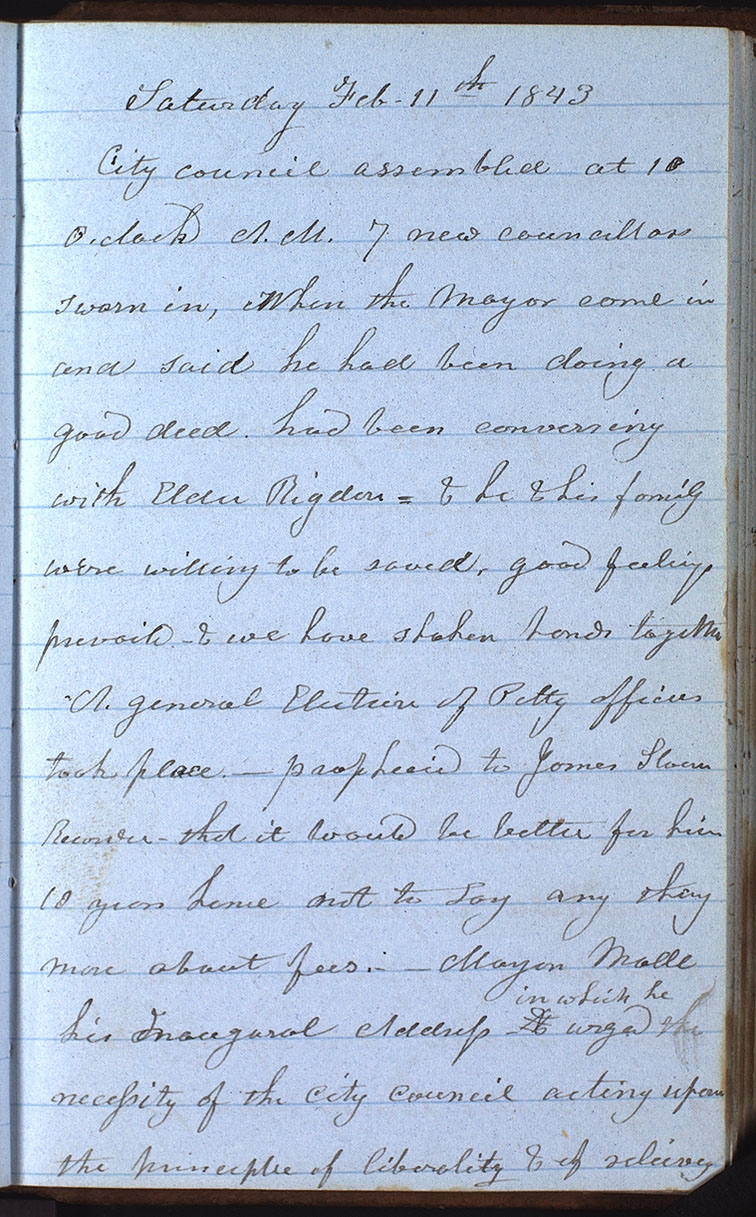 Saturday Feb- 11th 1843
City council assembled at 10
o.clock A. M. 7 new councillors
sworn in, When the Mayor come in
and said he had been doing a
good deed. had been conversing
with Elder Rigdon = & he & his family
were willing to be saved, good feelings
prevaild - & we have shaken hands together
A. general Election of Petty officers
took place. — prophecied to James Sloan
Recorder - that it would be better for him
10 years hence not to say any thing
more about fees. — Mayor Made
his Inaugural Address in which he urged the
necessity of the City Council acting upon
the principle of liberality & of relieving